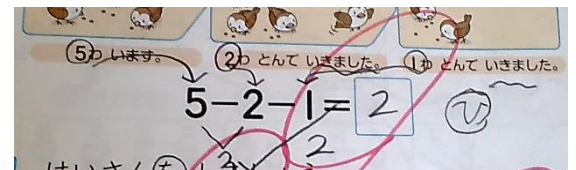 5わ います。 2わ とんで いきました。 1わ とんで いきました。
5-2-1=2 ひ
3 2
けいさんを し